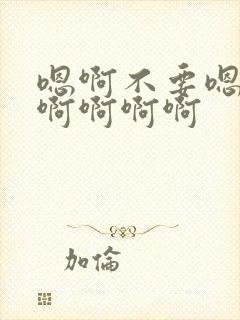 嗯啊不要嗯
啊啊啊啊
加倫